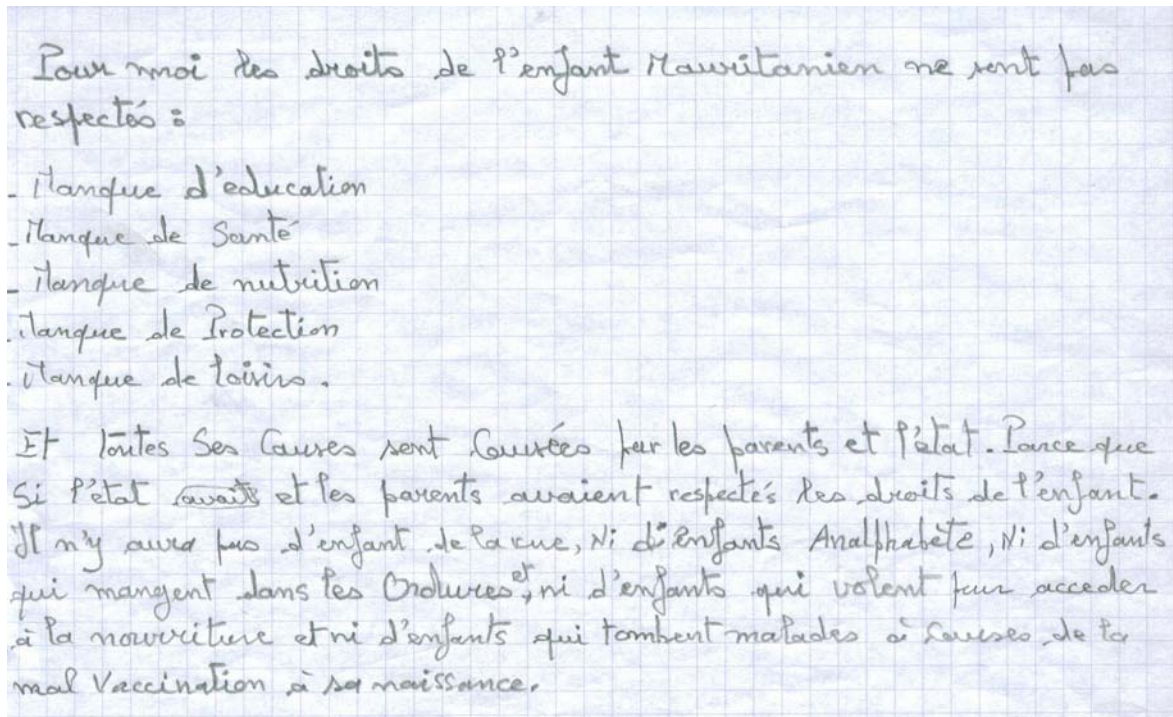 Pour moi les droits de l'enfant Mauritanien ne sont pas
respectés :
- Manque d'education
- Manque de Santé
- Manque de nutrition
- Manque de Protection
- Manque de loisirs.
Et toutes Ses Causes sont Causées par les parents et l'état. Parce que
Si l'état avaits et les parents avaient respectés les droits de l'enfant.
Il n'y aura pas d'enfant de la rue, Ni d'enfants Analphabète, Ni d'enfants
qui mangent dans les Ordures, et ni d'enfants qui volent pour acceder
à la nourriture et ni d'enfants qui tombent malades à Causes de la
mal Vaccination à sa naissance.